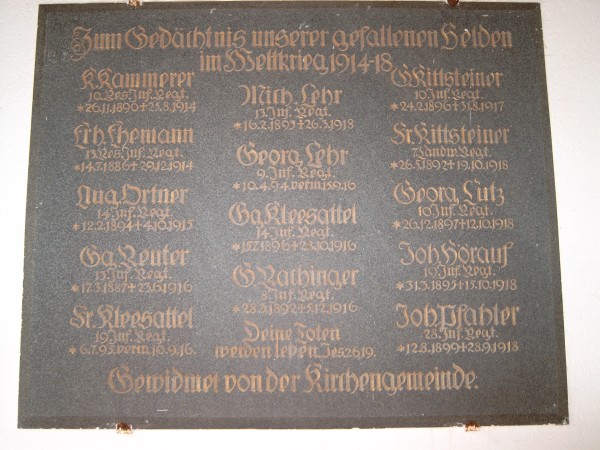 Zum Gedächtnis unserer gefallenen Helden
im Weltkrieg 1914-18
K. Kammerer
10. Res. Inf. Regt.
*26.11.1890 † 25.8.1914
Ehemann
13. Res. Inf. Regt.
*14.7.1886 † 29.12.1914
Aug. Ortner
14. Inf. Regt.
*12.2.1894 † 4.10.1915
Gg. Reuter
13. Inf. Regt.
*17.3.1887 † 23.6.1916
Fr. Kleesattel
19. Inf. Regt.
*6.7.95. verm. 16.9.16.
Mich. Lehr
13. Inf. Regt.
*16.2.1895 † 26.3.1918
Georg Lehr
9. Inf. Regt.
*10.4.94. verm. 15.9.16
Gg. Kleesattel
14. Inf. Regt.
*15.7.1896 † 23.10.1916
G. Rathinger
8. Inf. Regt.
*28.2.1892 † 5.12.1916
Deine Toten
werden leben. Jes 26.19.
G. Kittsteiner
10. Inf. Regt.
*24.2.1896 † 31.8.1917
Fr. Kittsteiner
7. Landw. Regt.
*26.5.1892 † 19.10.1918
Georg Lutz
10. Inf. Regt.
*26.12.1897 † 12.10.1918
Joh. Hörauf
19. Inf. Regt.
*31.3.1895 † 15.10.1918
Joh. Pfahler
28. Inf. Regt.
*12.8.1899 † 28.9.1918
Gewidmet von der Kirchengemeinde.